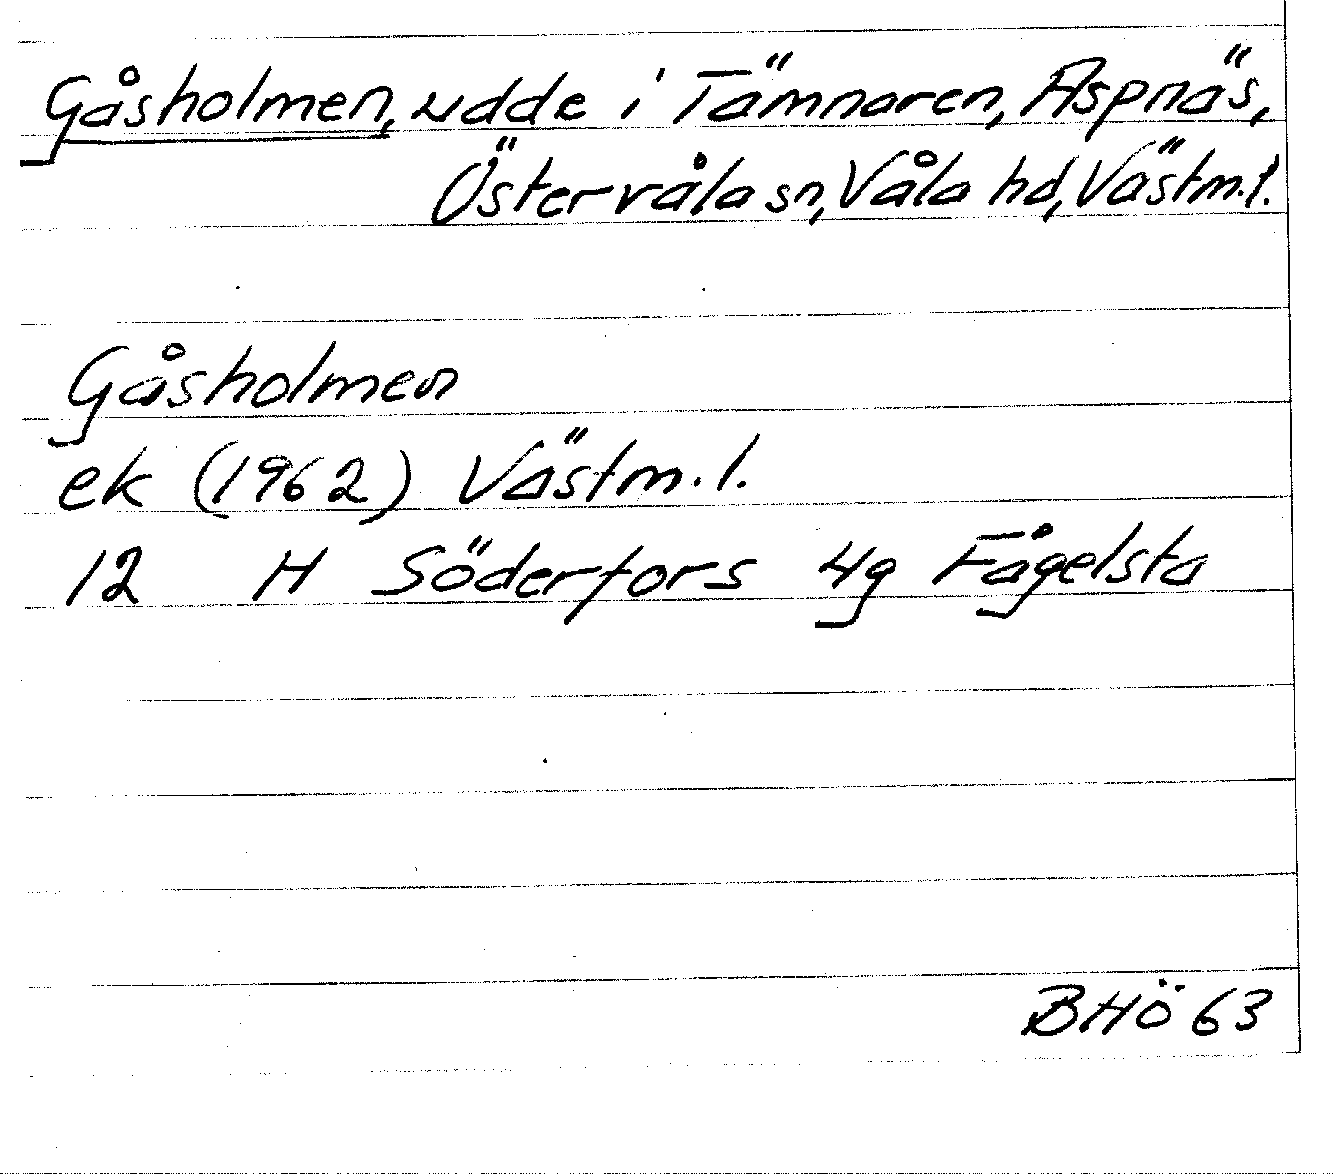 Gåsholmen, udde i Tämnaren, Aspnäs,
Östervåla sn, Våla hd, Västm.l.
Gåsholmen
ek (1962) Västm.l.
12 H Söderfors 4g Fågelsta
BHÖ 63